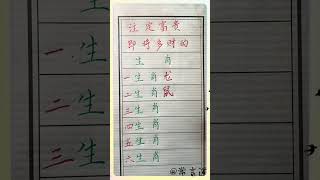 注定富贵
即将多财的
生肖
一生肖龙
二生肖鼠
三生肖
四生肖
五生肖
六生肖
一
二生
三生